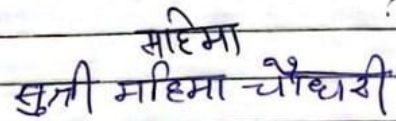 महिमा
सुश्री महिमा चौधरी